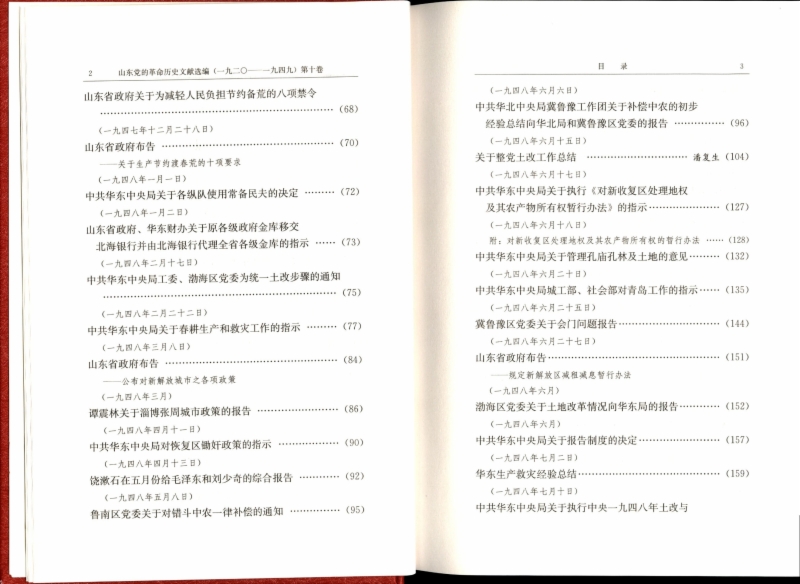 2 山东党的革命历史文献选编（一九二〇——一九四九）第十卷
山东省政府关于为减轻人民负担节约备荒的八项禁令
…………………………………………（68）
（一九四七年十二月二十八日）
山东省政府布告…………………………………（70）
——关于生产节约渡春荒的十项要求
（一九四八年一月一日）
中共华东中央局关于各纵队使用常备民夫的决定…………（72）
（一九四八年一月二日）
山东省政府、华东财办关于原各级政府金库移交
北海银行并由北海银行代理全省各级金库的指示……（73）
（一九四八年二月十七日）
中共华东中央局工委、渤海区党委为统一土改步骤的通知
…………………………………………（75）
（一九四八年二月二十二日）
中共华东中央局关于春耕生产和救灾工作的指示…………（77）
（一九四八年三月八日）
山东省政府布告…………………………………（84）
——公布对新解放城市之各项政策
（一九四八年三月）
谭震林关于淄博张周城市政策的报告………………（86）
（一九四八年四月十一日）
中共华东中央局对恢复区锄奸政策的指示……………（90）
（一九四八年四月十三日）
饶漱石在五月份给毛泽东和刘少奇的综合报告…………（92）
（一九四八年五月八日）
鲁南区党委关于对错斗中农一律补偿的通知……………（95）
目 录 3
（一九四八年六月六日）
中共华北中央局冀鲁豫工作团关于补偿中农的初步
经验总结向华北局和冀鲁豫区党委的报告……………（96）
（一九四八年六月十五日）
关于整党土改工作总结…………………………潘复生（104）
（一九四八年六月十七日）
中共华东中央局关于执行《对新收复区处理地权
及其农产物所有权暂行办法》的指示…………………（127）
（一九四八年六月十八日）
附：对新收复区处理地权及其农产物所有权的暂行办法……（128）
中共华东中央局关于管理孔庙孔林及土地的意见………（132）
（一九四八年六月二十日）
中共华东中央局城工部、社会部对青岛工作的指示……（135）
（一九四八年六月二十五日）
冀鲁豫区党委关于会门问题报告…………………（144）
（一九四八年六月二十七日）
山东省政府布告…………………………………（151）
——规定新解放区减租减息暂行办法
（一九四八年六月）
渤海区党委关于土地改革情况向华东局的报告…………（152）
（一九四八年六月）
中共华东中央局关于报告制度的决定………………（157）
（一九四八年七月二日）
华东生产救灾经验总结…………………………（159）
（一九四八年七月十日）
中共华东中央局关于执行中央一九四八年土改与